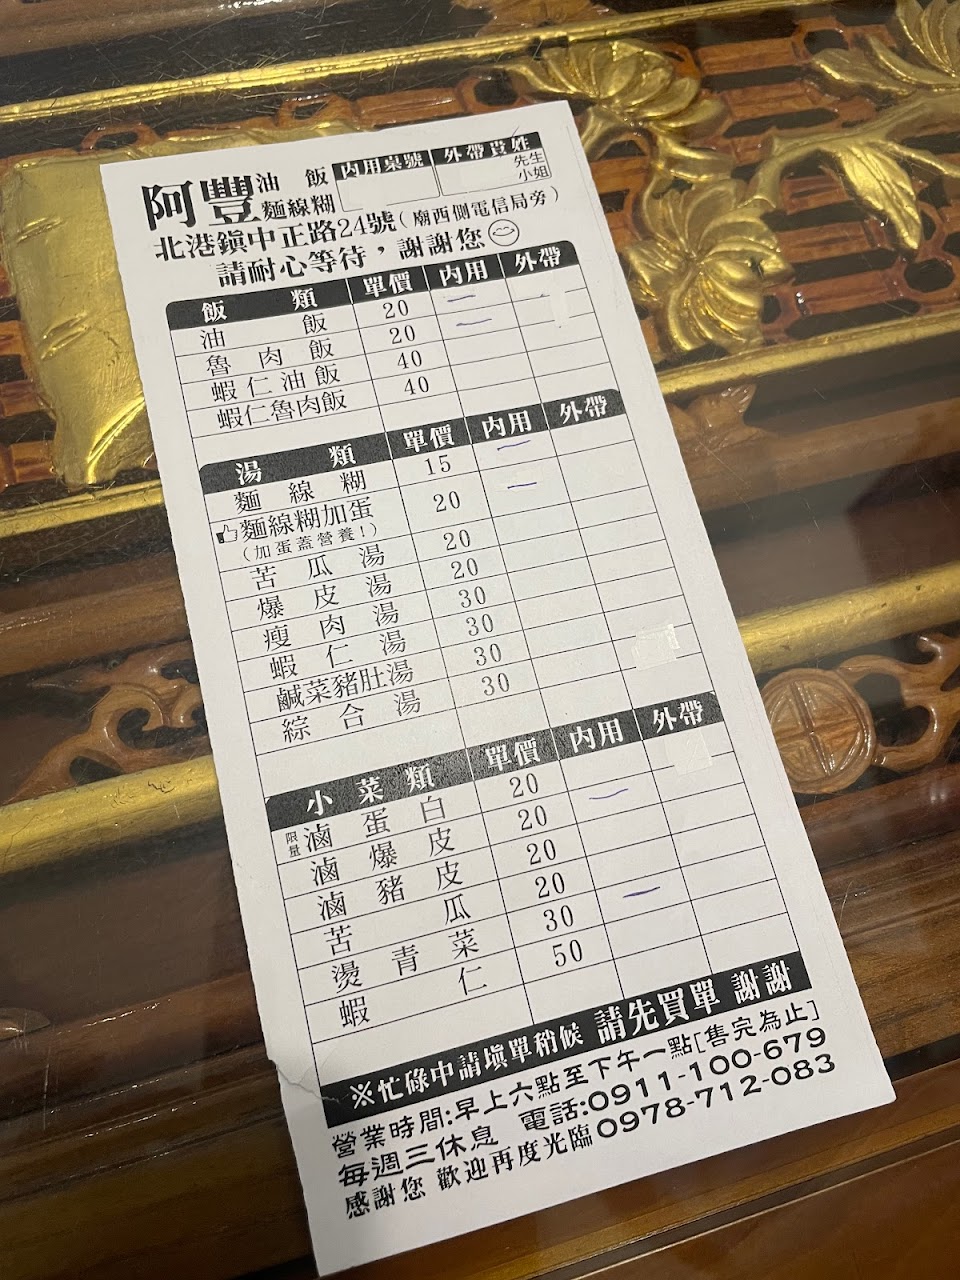 阿豐 油飯 麵線糊 內用桌號 外帶貴姓 先生 小姐
北港鎮中正路24號(廟西側電信局旁)
請耐心等待,謝謝您
飯類 單價 內用 外帶
油飯 20 一
魯肉飯 20 一
蝦仁油飯 40
蝦仁魯肉飯 40
湯類 單價 內用 外帶
麵線糊 15 一
麵線糊加蛋 20 一
(加蛋蓋營養!)
苦瓜湯 20
爆皮湯 20
瘦肉湯 30
蝦仁湯 30
鹹菜豬肚湯 30
綜合湯 30
小菜類 單價 內用 外帶
限量 滷蛋白 20
滷爆皮 20 一
滷豬皮 20
苦瓜 20
燙青菜 30 一
蝦仁 50
※忙碌中請填單稍候 請先買單 謝謝
營業時間:早上六點至下午一點[售完為止]
每週三休息 電話:0911-100-679
感謝您 歡迎再度光臨 0978-712-083